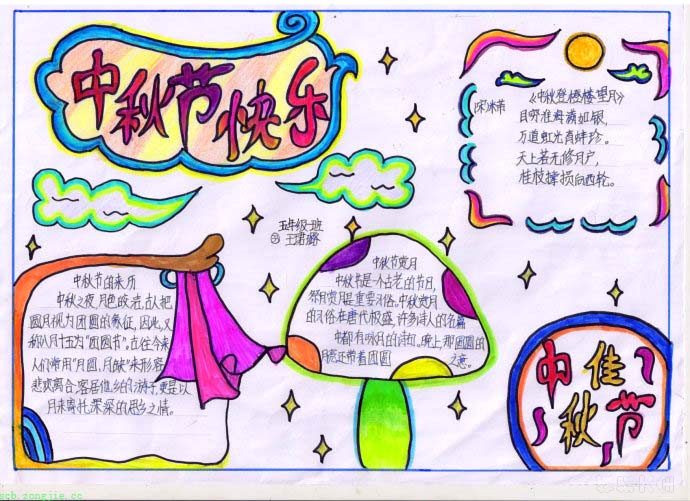 中秋节快乐
《中秋登楼望月》
宋 米芾
目穷淮海满如银,
万道虹光育蚌珍。
天上若无修月户,
桂枝撑损向西轮。
五年级一班
中秋节的来历
中秋之夜,月色皎洁,古人把
圆月视为团圆的象征,因此,又
称八月十五为“团圆节”。古往今来,
人们常用“月圆、月缺”来形容
悲欢离合,客居他乡的游子,更是以
月来寄托深深的思乡之情。
中秋节赏月
中秋节是一个古老的节日,
祭月赏月是重要习俗。中秋赏月
的习俗在唐代极盛,许多诗人的名篇
中都有咏月的诗句,
圆圆的
月亮还带着团圆
之意。
中秋佳节